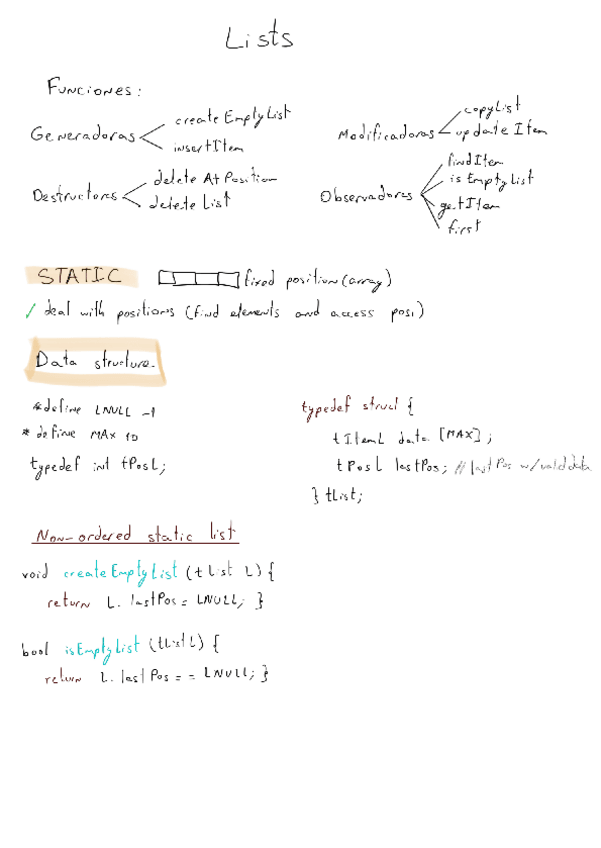 Lists
Funciones:
Generadoras
createEmptyList
insertItem
Destructores
delete At Position
delete List
Modificadoras
copyList
update Item
Observadores
findItem
is EmptyList
getItem
first
STATIC fixed position (array)
✓ deal with positions (find elements and access pos.)
Data structure.
*define LNULL -1
* define MAX 10
typedef int tPosL;
typedef struct {
tItemL data [MAX];
tPosL lastPos; // last Pos w/ valid data
} tList;
Non-ordered static list
void createEmptyList (tList L) {
return L. lastPos = LNULL; }
bool isEmptyList (tList L) {
return L. lastPos = = LNULL; }